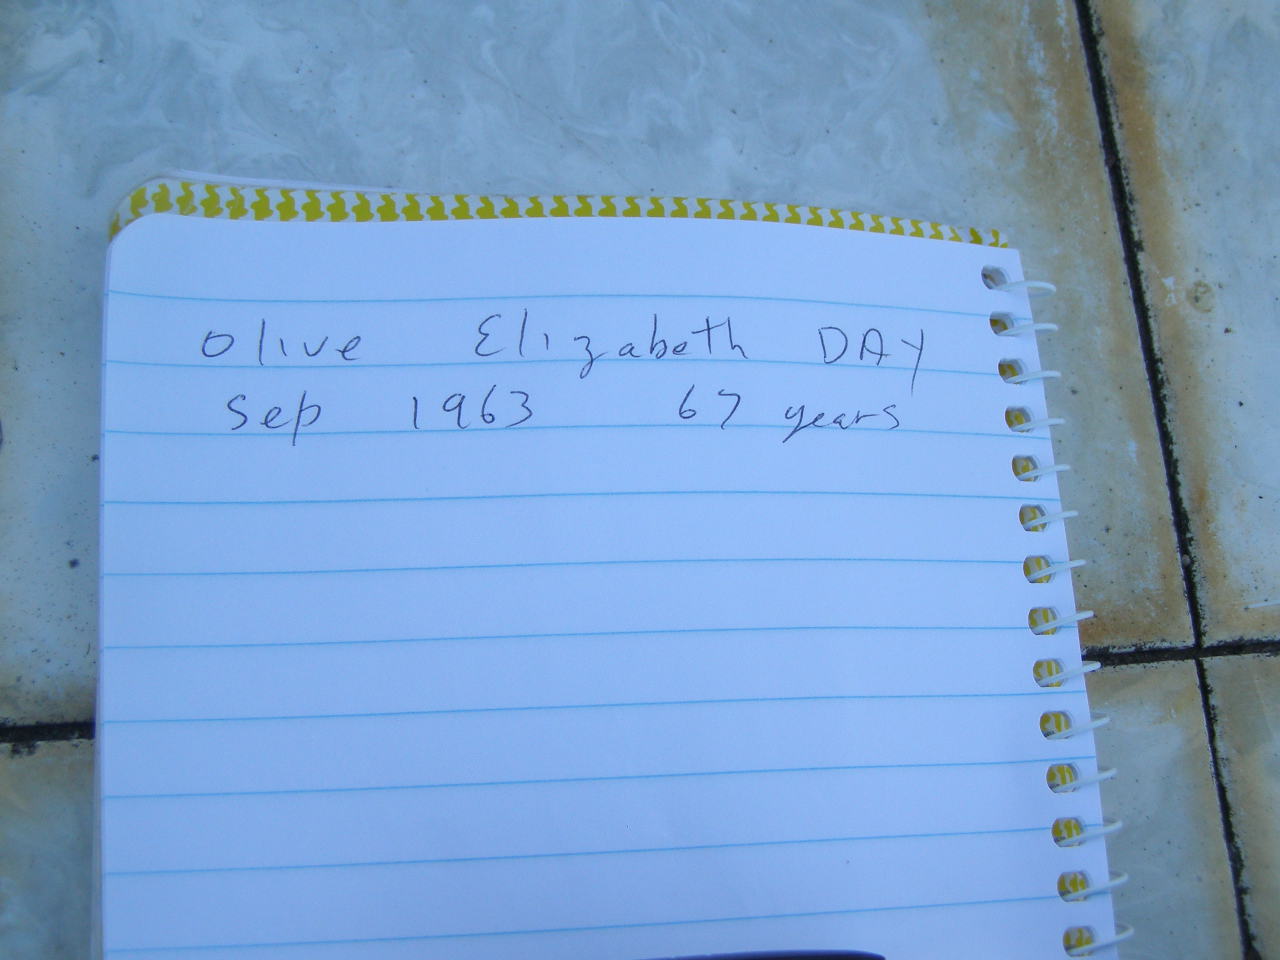 Olive Elizabeth DAY
Sep 1963 67 years